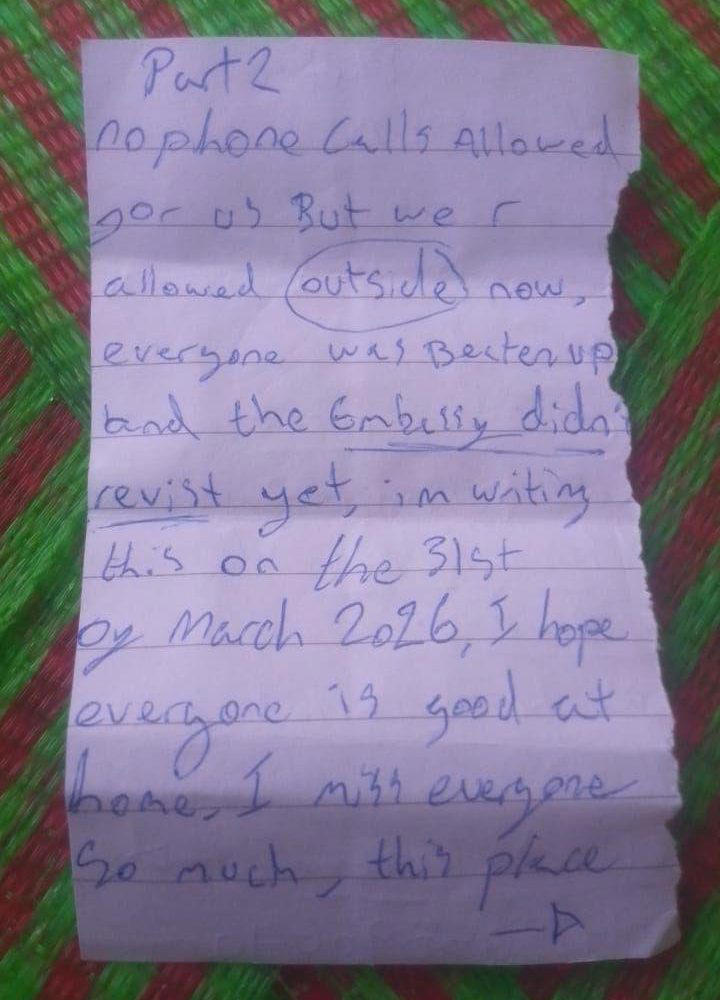 Part 2
no phone Calls Allowed
gor us But we r
allowed outside now,
everyone was Beaten up
and the Embassy didn't
revist yet, im writing
this on the 31st
og March 2026, I hope
everyone is good at
home, I miss everyone
So much, this place